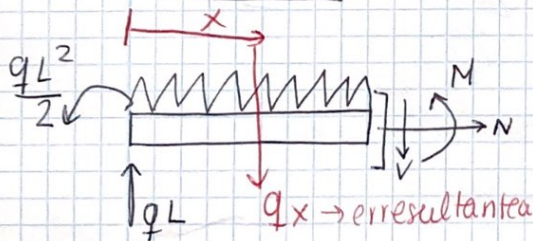 x
qL²/2
M
N
V
qL
qx → erresultantea